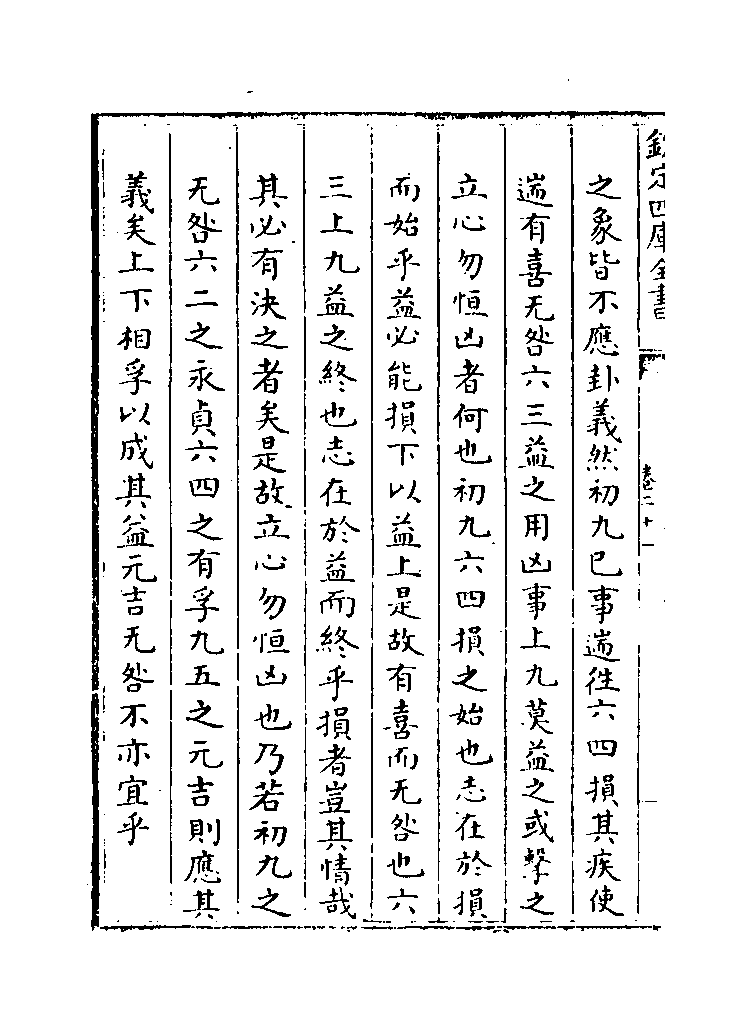 欽定四庫全書
卷二十一
之象皆不應卦義然初九巳事遄徃六四損其疾使
遄有喜无咎六三益之用凶事上九莫益之或擊之
立心勿恒凶者何也初九六四損之始也志在於損
而始乎益必能損下以益上是故有喜而无咎也六
三上九益之終也志在於益而終乎損者豈其情哉
其必有決之者矣是故立心勿恒凶也乃若初九之
无咎六二之永貞六四之有孚九五之元吉則應其
義矣上下相孚以成其益元吉无咎不亦宜乎